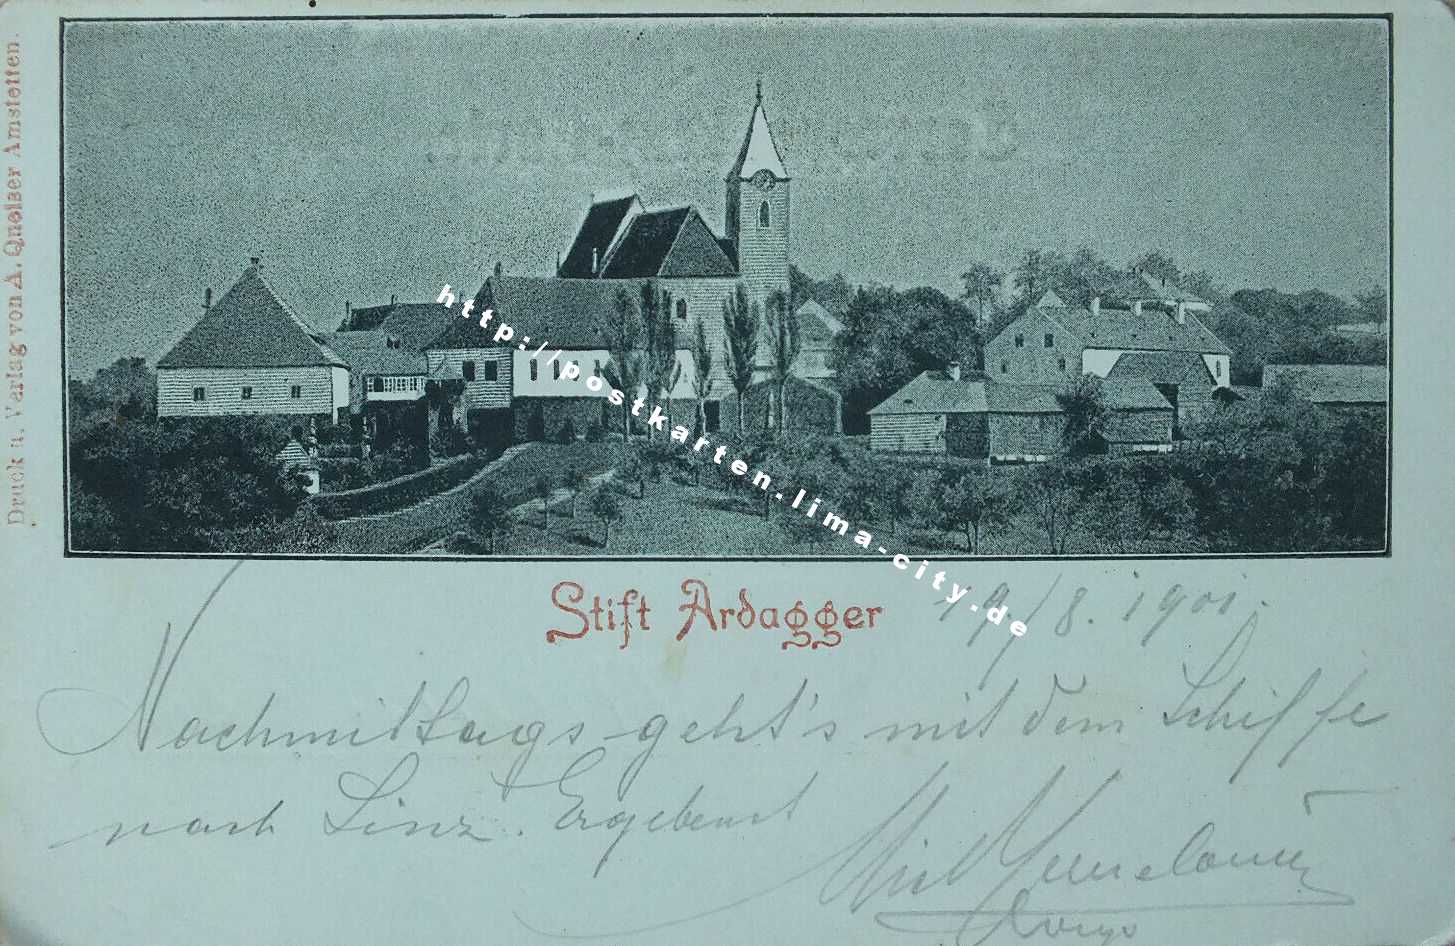 Druck u. Verlag von A. Queiser Amstetten.
http://postkarten.lima-city.de
Stift Ardagger
19/8. 1901.
Nachmittags geht's mit dem Schiffe
nach Linz. Ergebenst